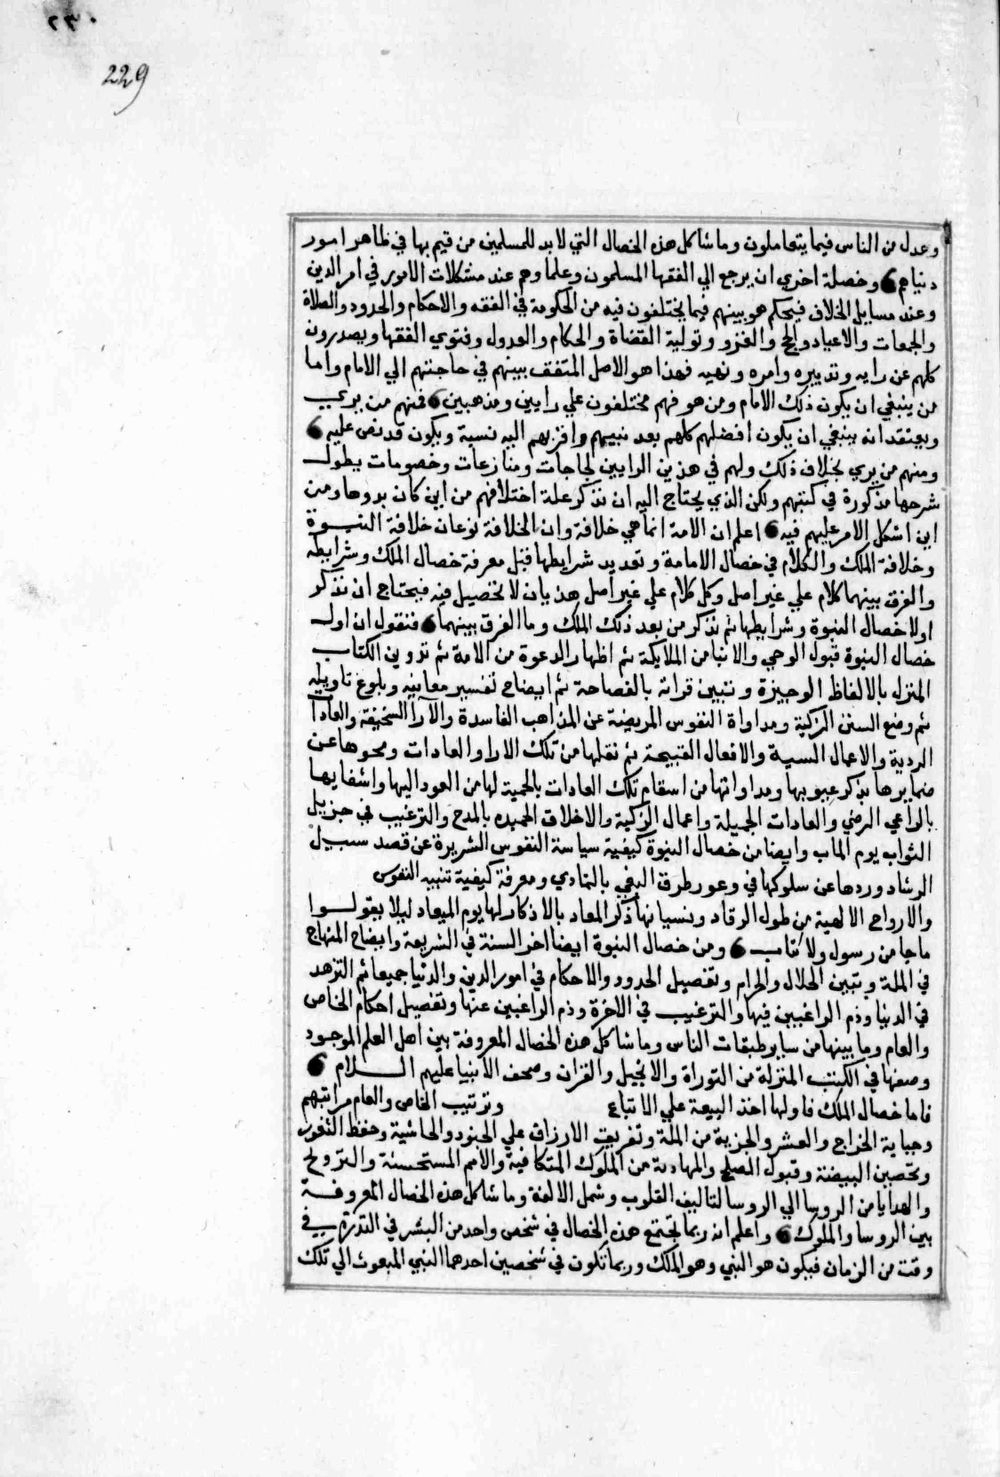 ٢٣٠
229
وعدل من الناس فيما يتعاملون وما شاكل هذه الخصال التي لا بد للمسلمين من قيم بها في ظاهر امور
دنياهم وخصلة اخري ان يرجع الي الفقها المسلمون وعلماوهم عند مشكلات الامور في امر الدين
وعند مسايل الخلاف فيحكم هو بينهم فيما يختلفون فيه من الحكومة في الفقه والاحكام والحدود والصلاة
والجمعات والاعياد والحج والغزو وتولية القضاة والحكام والعدول وفتوي الفقها ويصدرون
كلهم عن رايه وتدبيره وامره ونهيه فهذا هو الاصل المتفق بينهم في حاجتهم الي الامام واما
من ينبغي ان يكون ذلك الامام ومن هو فهم مختلفون علي رايين ومذهبين فمنهم من يري
ويعتقد انه ينبغي ان يكون افضلهم كلهم بعد نبيهم واقربهم اليه نسبة ويكون قد نص عليه
ومنهم من يري بخلاف ذلك ولهم في هذين الرايين لجاجات ومنازعات وخصومات يطول
شرحها مذكورة في كتبهم ولكن الذي يحتاج اليه ان نذكر علة اختلافهم من اين كان بدوها ومن
اين اشكل الامر عليهم فيه اعلم ان الامة انما هي خلافة وان الخلافة نوعان خلافة النبوة
وخلافة الملك والكلام في خصال الامامة وتعديد شرايطها قبل معرفة خصال الملك وشرايطه
والفرق بينهما كلام علي غير اصل وكل كلام علي غير اصل هذيان لا تحصيل فيه فيحتاج ان نذكر
اولا خصال النبوة وشرايطها ثم نذكر من بعد ذلك الملك وما الفرق بينهما فنقول ان اول
خصال النبوة قبول الوحي والانبا من الملايكة ثم اظهار الدعوة من الامة ثم تدوين الكتاب
المنزل بالالفاظ الوجيزة وتبيين قراته بالفصاحة ثم ايضاح تفسير معانيه وبلوغ تاويله
ثم وضع السنن الزكية ومداواة النفوس المريضة عن المذاهب الفاسدة والآرا السخيفة والعادا
الردية والاعمال السية والافعال القبيحة ثم نقلها من تلك الارا والعادات ومحوها عن
ضمايرها بذكر عيوبها ومداواتها من اسقام تلك العادات بالحمية لها من العود اليها واشفايها
بالراعي الرضي والعادات الجميلة واعمال الزكية والاخلاق الحميده بالمدح والترغيب في جزيل
الثواب يوم الماب وايضا من خصال النبوة كيفية سياسة النفوس الشريرة عن قصد سبيل
الرشاد وردها عن سلوكها في وعور طرق البغي بالتمادي ومعرفة كيفية تنبيه النفوس
والارواح الالهية من طول الرقاد ونسيانها ذكر المعاد بالاذكار لها يوم الميعاد ليلا يقولوا
ما جا من رسول ولا كتاب ومن خصال النبوة ايضا اخر السنة في الشريعة وايضاح المنهاج
في الملة وتبين الحلال والحرام وتفصيل الحدود والاحكام في امور الدين والدنيا جميعا ثم التزهد
في الدنيا وذم الراغبين فيها والترغيب في الاخرة وذم الراغبين عنها وتفصيل احكام الخاص
والعام وما بينها من ساير طبقات الناس وما شاكل هذه الخصال المعروفة بين اهل العلم الموجود
وصفها في الكتب المنزلة من التوراة والانجيل والقران وصحف الانبيا عليهم السلام
فاما خصال الملك فاولها اخذ البيعة علي الاتباع وترتيب الخاص والعام مراتبهم
وجباية الخراج والعشر والجزية من الملة وتفريق الارزاق علي الجنود والحاشية وحفظ الثغور
وتحصين البيضة وقبول الصلح والمهادنة من الملوك المتكافية والامم المستحسنة والتزويج
والهدايا من الروسا الي الروسا لتاليف القلوب وشمل الالفة وما شاكل هذه الخصال المعروفة
بين الروسا والملوك واعلم انه ربما تجتمع هذه الخصال في شخص واحد من البشر في الندرة في
وقت من الزمان فيكون هو النبي وهو الملك وربما تكون في شخصين احدهما النبي المبعوث الي تلك